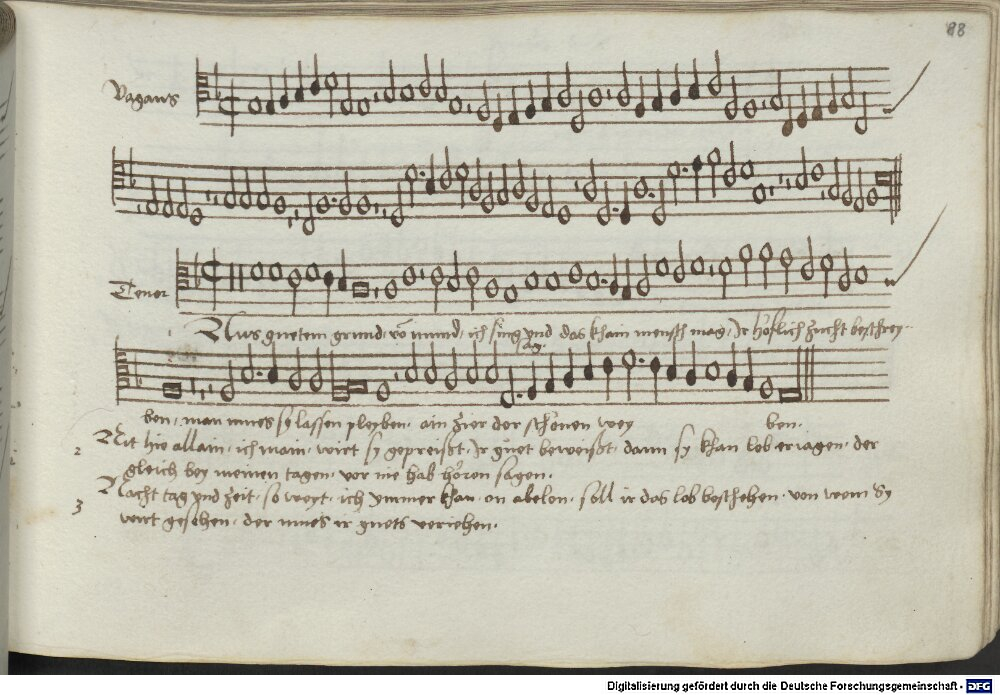 88
Vagans
Tenor
Aus guetem grund, vō mund, ich sing vnd das khain mensch mag, Ir höflich zucht beschrey-
ag.
ben, man mues sy lassen pleyben, ain zier der schönen wey ben.
2 Nit hie allain, ich main, wirt sy gepreißt, Ir guet beweißt, dann sy khan lob eriagen, der
gleich bey meinen tagen, vor nie hab hören sagen.
3 Nacht tag vnd zeit, so weyt, ich ymmer khan, on abelon, soll ir das lob beschehen, von wem sy
wirt gesehen, der mues ir guets veriehen.
Digitalisierung gefördert durch die Deutsche Forschungsgemeinschaft - DFG